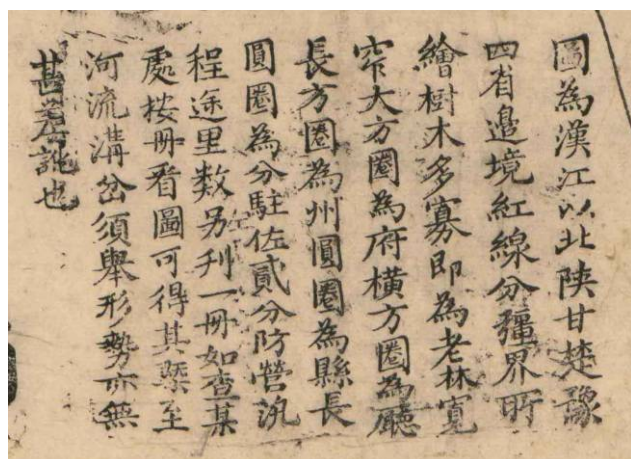 圖為漢江以北陝甘楚豫
四省邊境紅線分疆界所
繪樹木多寡即為老林寬
窄大方圈為府橫方圈為廳
長方圈為州圓圈為縣長
圓圈為分駐佐貳分防營汛
程途里數另刋一冊如查某
處按冊看圖可得其槩至
河流溝岔須舉形勢亦無
甚差訛也